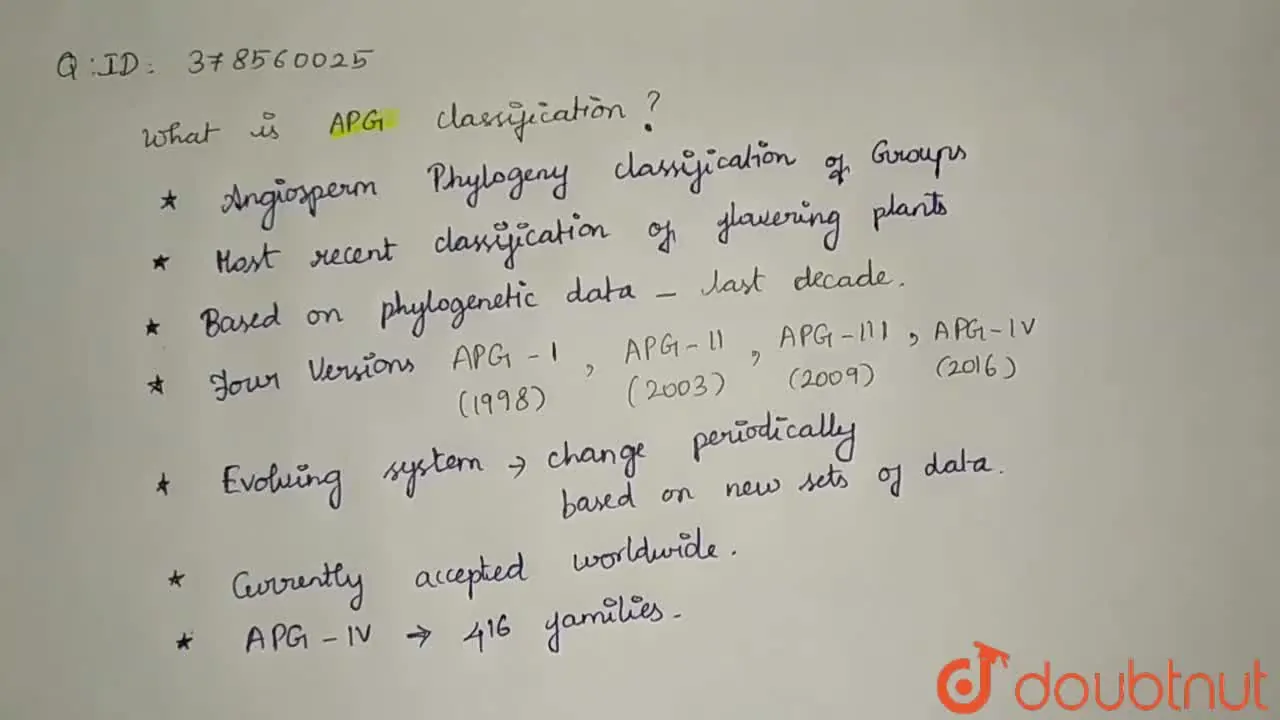 Q:ID: 378560025
What is APG classification?
★ Angiosperm Phylogeny classification of Groups
★ Most recent classification of flowering plants
★ Based on phylogenetic data – last decade.
★ Four Versions APG-I, APG-II, APG-III, APG-IV
(1998) (2003) (2009) (2016)
★ Evolving system → change periodically
based on new sets of data.
★ Currently accepted worldwide.
★ APG-IV → 416 families.
doubtnut